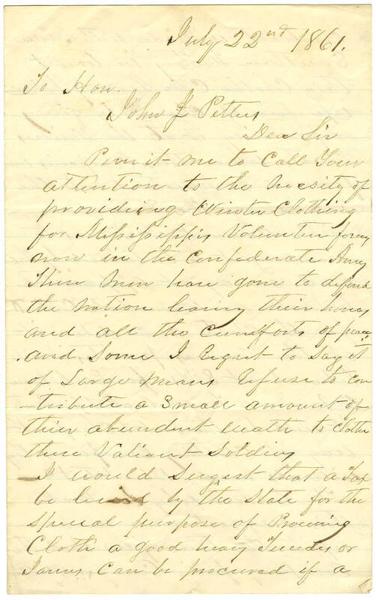 July 22nd 1861.
To Hon.
John J Pettus
Dear Sir
Permit me to Call Your
attention to the Necesity of
providing Winter Clothing
for Mississippis Volunteer forces
now in the Confederate Army
These men have gone to defend
the Nation leaving their homes
and all the Comforts of peace
and Some I Regret to Say it
of Large means Refuse to con
tribute a Small amount of
their abundent wealth to clothe
these Valiant Soldiers
I would Sugest that a Tax
be levied by the State for the
Special purpose of Procuring
Cloth a good heavy or
Janes can be procured if a